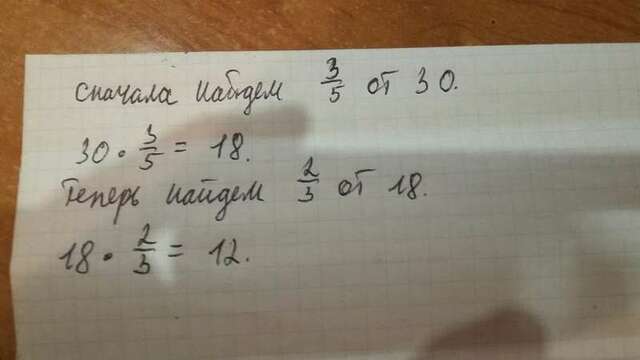 Сначала найдем 3/5 от 30.
30 · 3/5 = 18.
Теперь найдем 2/3 от 18.
18 · 2/3 = 12.